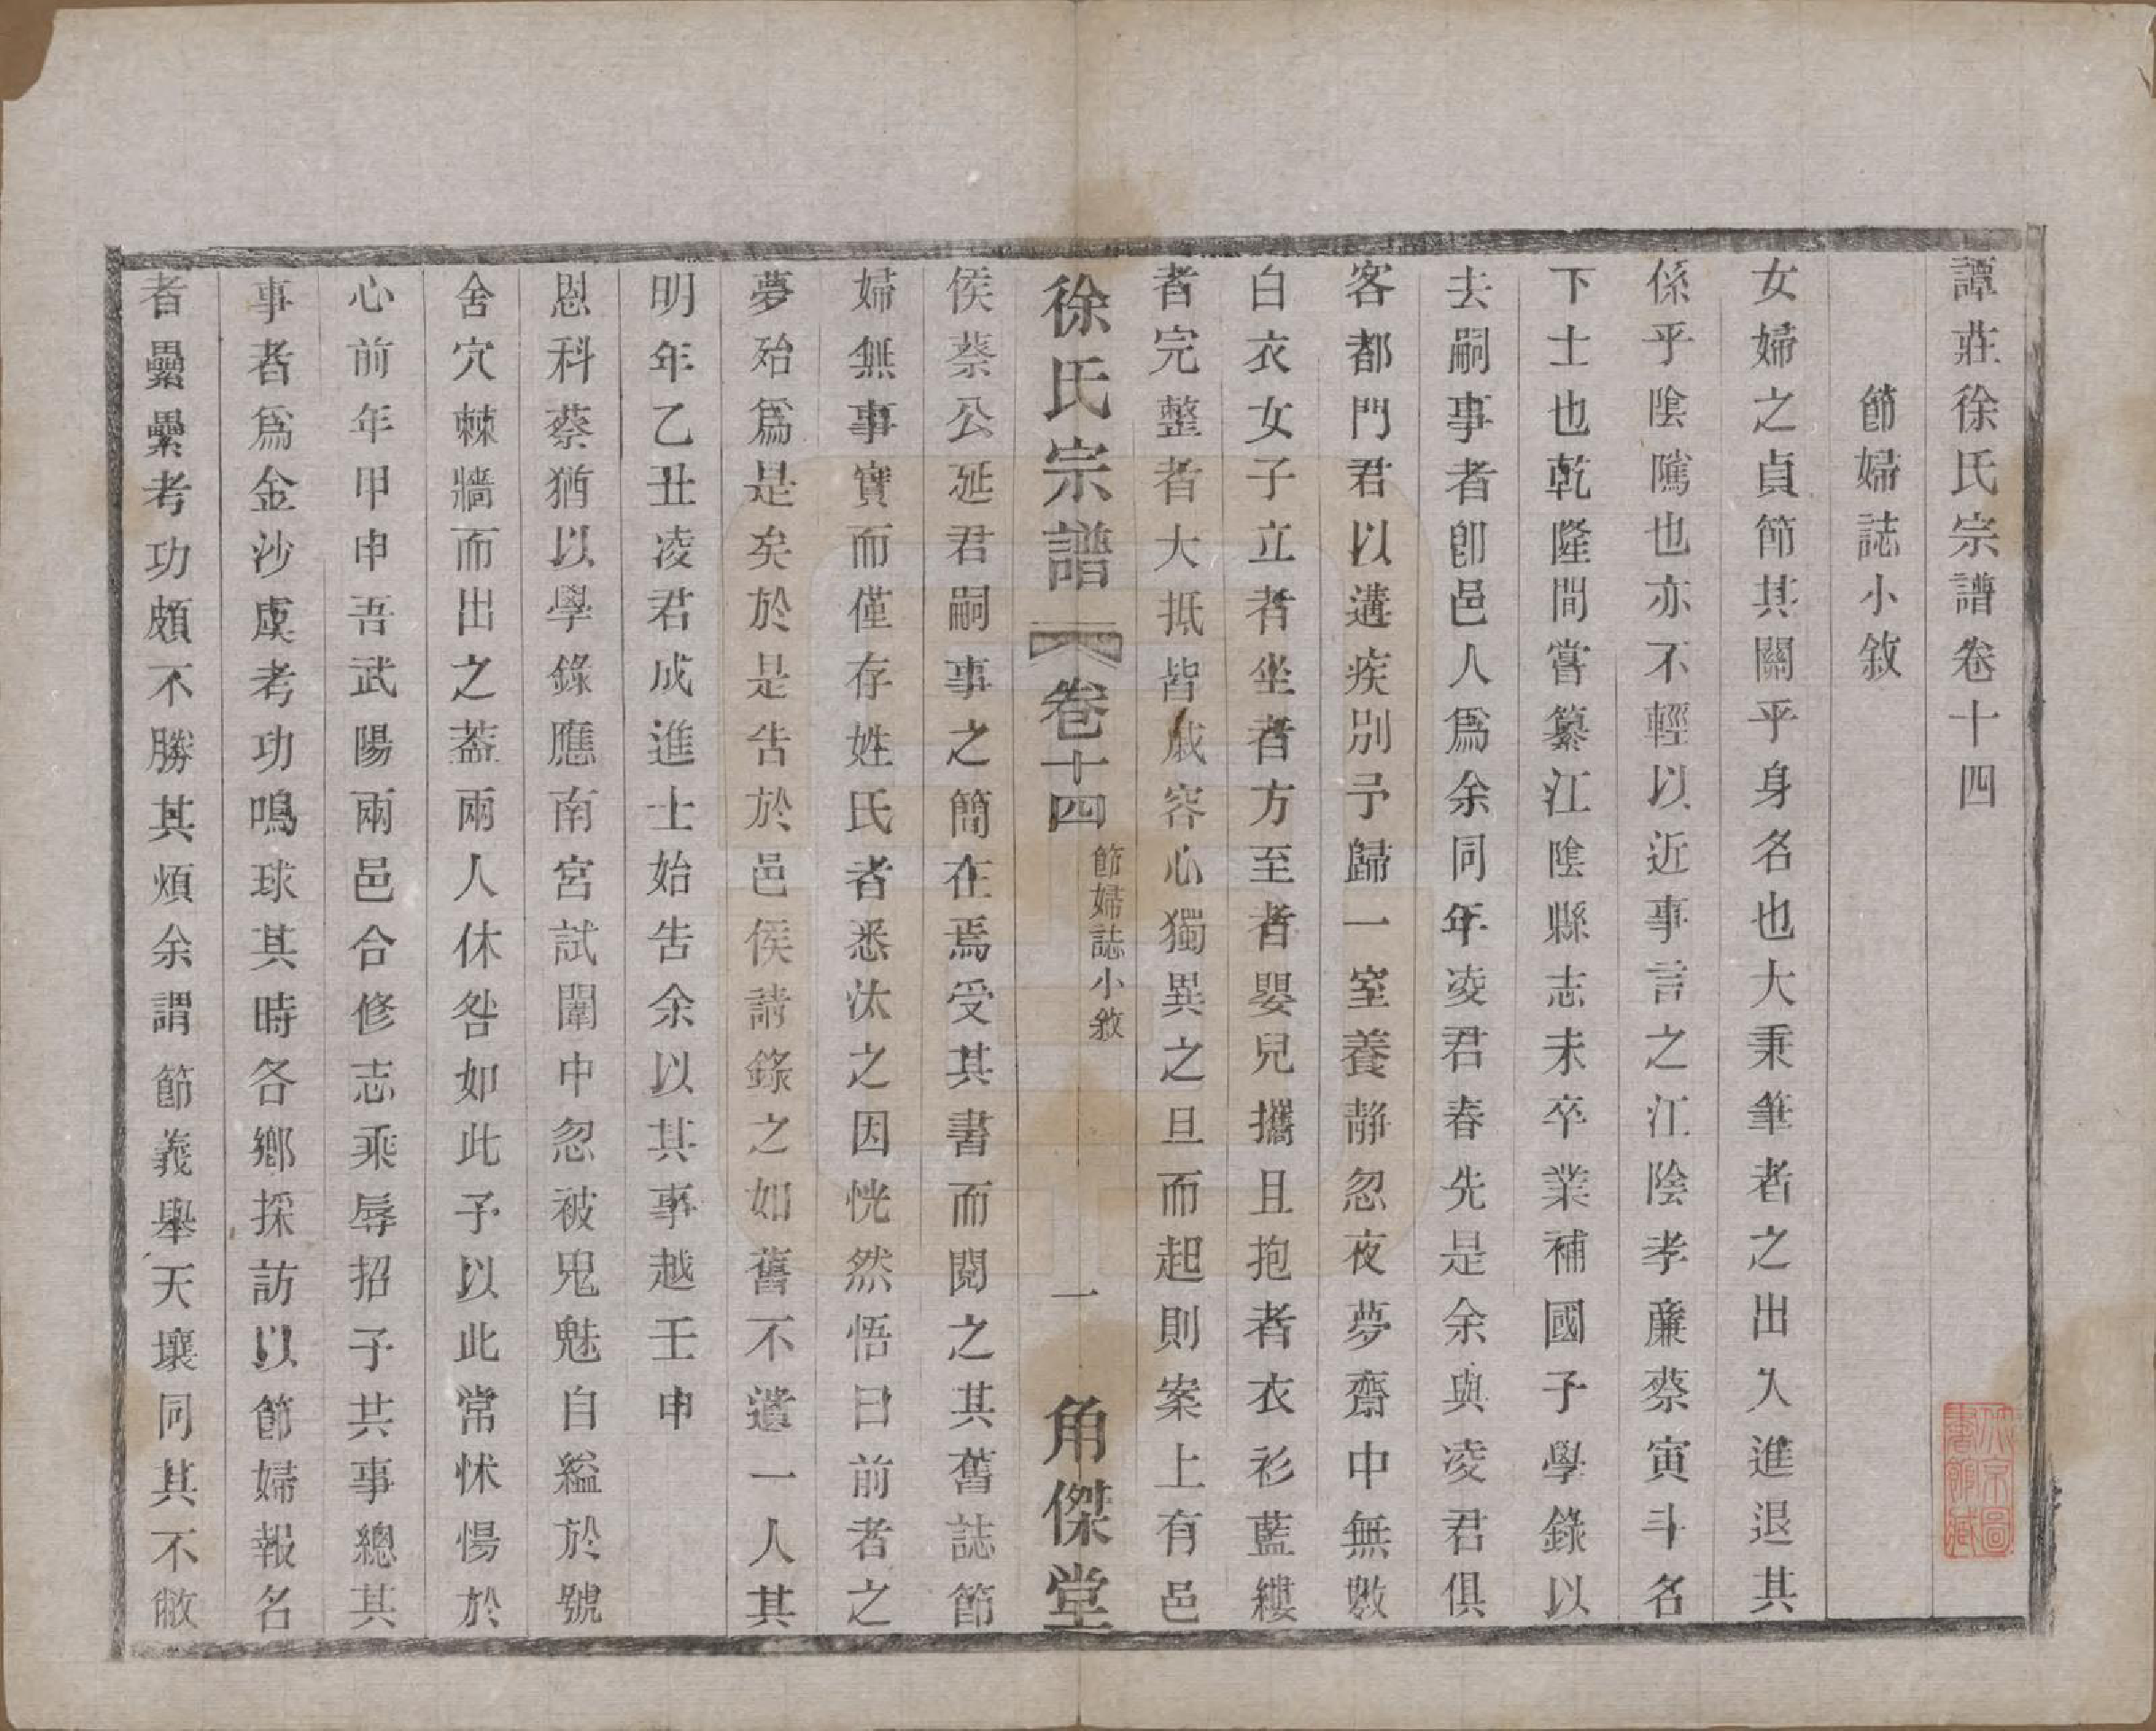 譚莊徐氏宗譜卷十四
節婦誌小敘
女婦之貞節其關乎身名也大秉筆者之出入進退其
係乎陰隲也亦不輕以近事言之江陰孝廉蔡寅斗名
下士也乾隆間嘗纂江陰縣志未卒業補國子學錄以
去嗣事者卽邑人爲余同年凌君春先是余與凌君俱
客都門君以遘疾別予歸一室養靜忽夜夢齋中無數
白衣女子立者坐者方至者嬰兒攜且抱者衣衫藍縷
者完整者大抵皆戚容心獨異之旦而起則案上有邑
徐氏宗譜 卷十四 節婦誌小敘 一 角傑堂
侯蔡公延君嗣事之簡在焉受其書而閱之其舊誌節
婦無事實而僅存姓氏者悉汰之因恍然悟曰前者之
夢殆爲是矣於是告於邑侯請錄之如舊不遺一人其
明年乙丑凌君成進士始告余以其事越壬申
恩科蔡猶以學錄應南宮試闈中忽被鬼魅自縊於號
舍穴棘牆而出之蓋兩人休咎如此予以此常怵惕於
心前年甲申吾武陽兩邑合修志乘辱招予共事總其
事者爲金沙虞考功鳴球其時各鄉採訪以節婦報名
者纍纍考功頗不勝其煩余謂節義舉天壤同其不敝